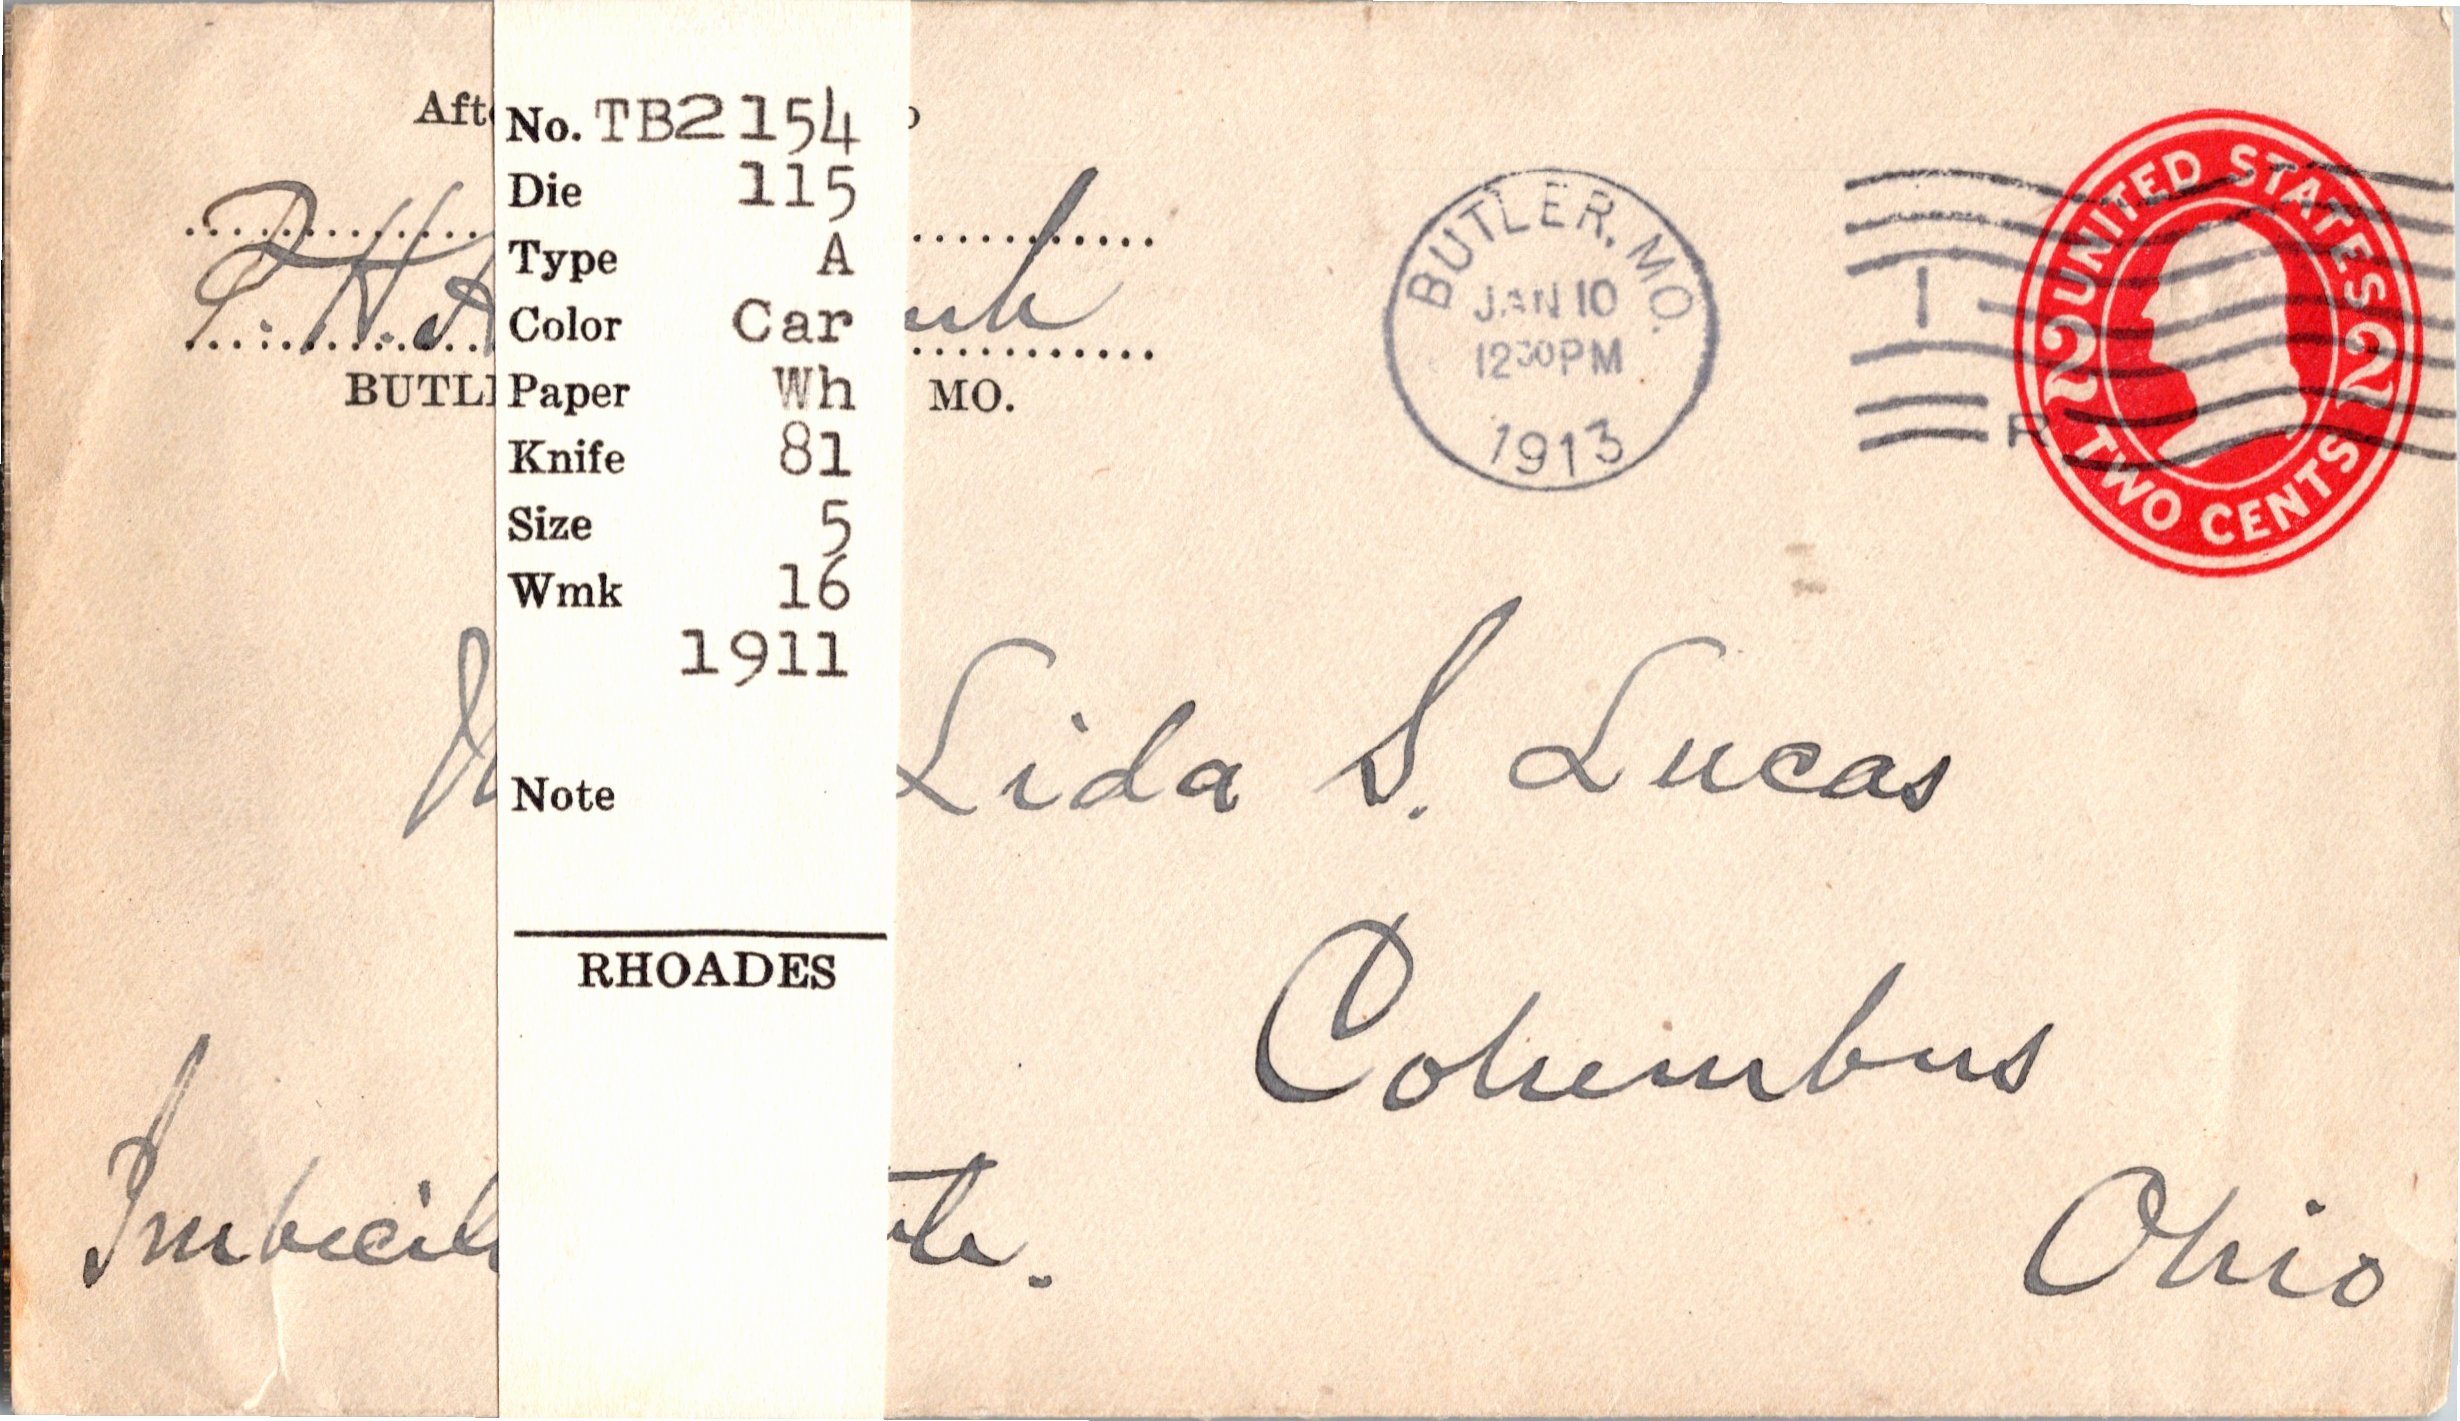 Aft
BUTL MO.
No. TB2154
Die 115
Type A
Color Car
Paper Wh
Knife 81
Size 5
Wmk 16
1911
Note
RHOADES
BUTLER, MO.
JAN 10
1230PM
1913
1
R
UNITED STATES
2 2
TWO CENTS
Lida S. Lucas
Columbus
Ohio
Imbecil